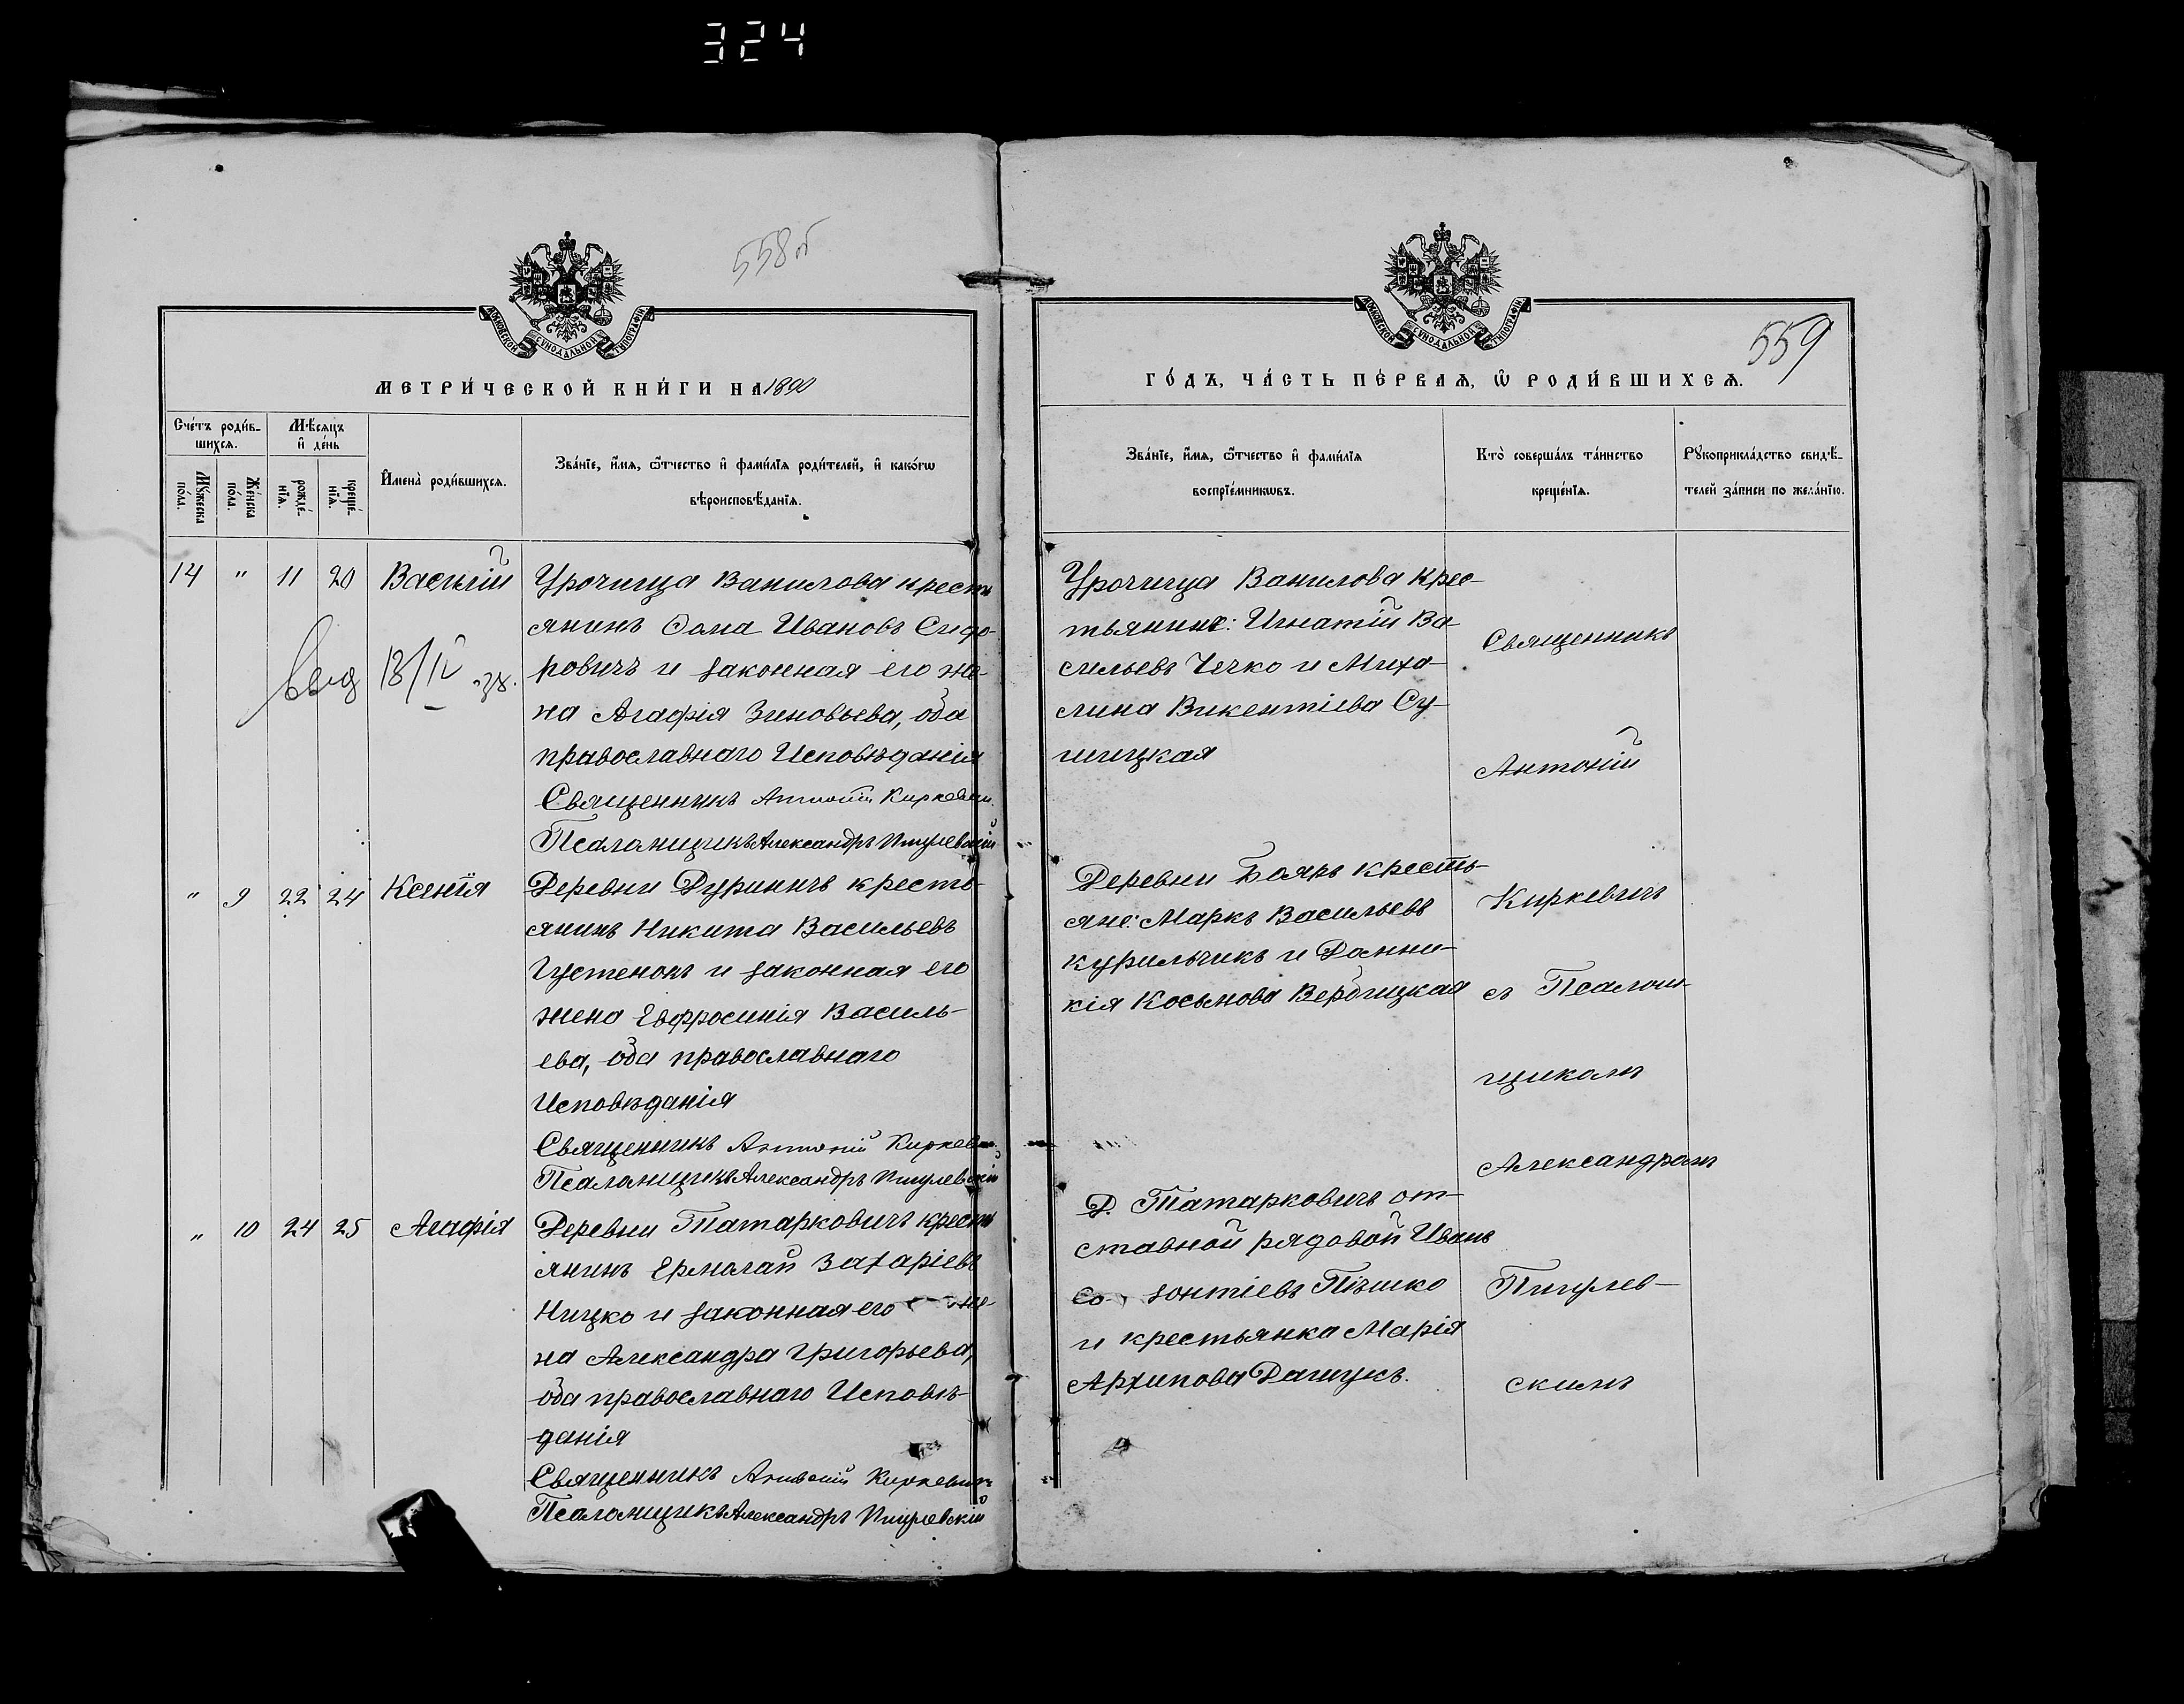 324
558об
МОСКОВСКОЙ СѴНОДАЛЬНОЙ ТИПОГРАФІИ
МЕТРИ́ЧЕСКОЙ КНИ́ГИ НА 1890
Сче́тъ роди́в-
шихсѧ.
Мѣ́сѧцъ
и҆ де́нь
Мꙋ́жеска
по́ла.
Же́нска
по́ла.
рожде́-
нїѧ.
креще́-
нїѧ.
И҆мена̀ роди́вшихсѧ.
Зва́нїе, и҆́мѧ, ѻ҆́тчество и҆ фами́лїѧ роди́телей, и҆ како́гѡ
вѣроисповѣ́данїѧ.
14 " 11 20 Василій
Урочища Ванилова кресть
янинъ Ѳома Ивановъ Сидо-
ровичъ и законная его же-
на Агафія Зиновьева, оба
православнаго Исповѣданія
Священникъ Антоній Киркевич
Псаломщикъ Александръ Пигулевскій
выд 13/IV
" 9 22 24 Ксенія
Деревни Дуриничъ кресть-
янинъ Никита Васильевъ
Густенокъ и законная его
жена Евфросинія Василь-
ева, оба православнаго
Исповѣданія
Священникъ Антоній Киркевич
Псаломщикъ Александръ Пигулевскій
" 10 24 25 Агафія
Деревни Татарковичъ кресть
янинъ Ермолай Захаріевъ
Ницко и законная его же-
на Александра Григорьева,
оба православнаго Исповѣ-
данія
Священникъ Антоній Киркевичъ
Псаломщикъ Александръ Пигулевскій
559
МОСКОВСКОЙ СѴНОДАЛЬНОЙ ТИПОГРАФІИ
ГО́ДЪ, ЧА́СТЬ ПЕ́РВАѦ, Ѡ҆ РОДИ́ВШИХСѦ.
Зва́нїе, и҆́мѧ, ѻ҆́тчество и҆ фами́лїѧ
воспрїе́мникѡвъ.
Кто̀ соверша́лъ та́инство
креще́нїѧ.
Рꙋкоприкла́дство свидѣ́-
телей за́писи по жела́нїю.
Урочища Ванилова крес-
тьяните: Игнатій Ва
сильевъ Чечко и Миха-
лина Викентіева Су-
шицкая
Деревни Бояръ кресть-
яне: Маркъ Васильевъ
Курильчикъ и Домни-
кія Косьмова Вербицкая
Д. Татарковичъ от-
ставной рядовой Иванъ
зонтіевъ Пѣшко
и крестьянка Марія
Архипова Дащукъ.
Священникъ
Антоній
Киркевичъ
съ Псалом-
щикомъ
Александромъ
Пигулев-
скимъ